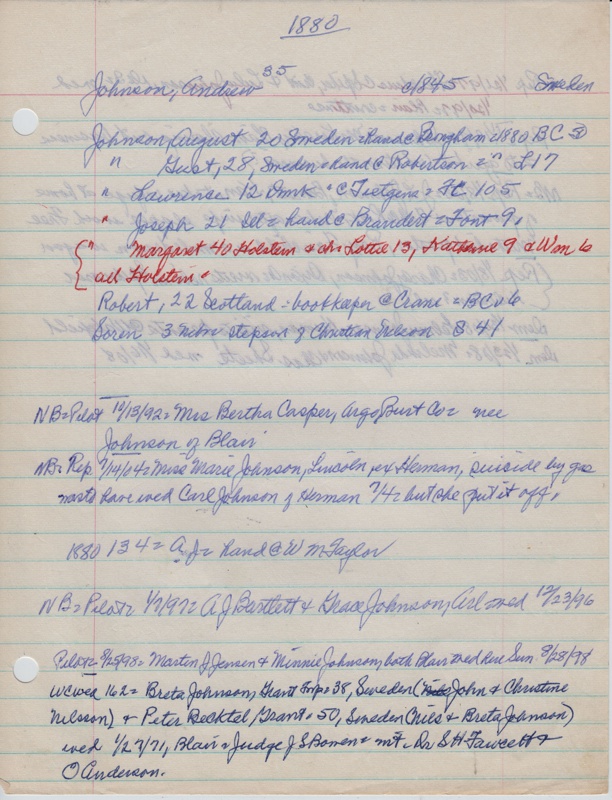 1880
Johnson, Andrew 35 c/845 Sweden
Johnson, August 20 Sweden = hand @ Bingham = 1880 BC
" Gust, 28, Sweden = hand @ Robertson = " L17
" Lawrence 12 Dmk " @ Tietgens = FC 105
" Joseph 21 Ill = hand @ Brandert = Font 9,
" Margaret 40 Holstein & ch: Lottie 13, 9 & Wm 6
all Holstein "
Robert, 22 Scotland = bookkeeper @ Crane = BC 6
Soren 3 Nebr stepson of Christian Nelson S 41
NB = Pilot 10/13/92 = Mrs Bertha Casper, Argo, Burt Co = nee
Johnson of Blair
NB = Rep 7/14/04 = Miss Marie Johnson, Lincoln, ex Herman, suicide by gas
was to have wed Carl Johnson of Herman 7/4 = but she put it off.
1880 134 = A J = hand @ W M Taylor
NB = Pilot = 1/7/97 = A J Bartlett & Grace Johnson, Arl = wed 12/23/96
Pilot = 8/25/98 = Martin J Jensen & Minnie Johnson, both Blair wed here Sun 8/28/98
WC Wed 162 = Breta Johnson, Grant Twp = 38, Sweden (John & Christine
Nilsson) & Peter Becktel, Grant = 50, Sweden (Nils & Breta Johnson)
wed 1/27/71, Blair = Judge J S Bowen = wit. Dr S H Fawcett &
O Anderson.